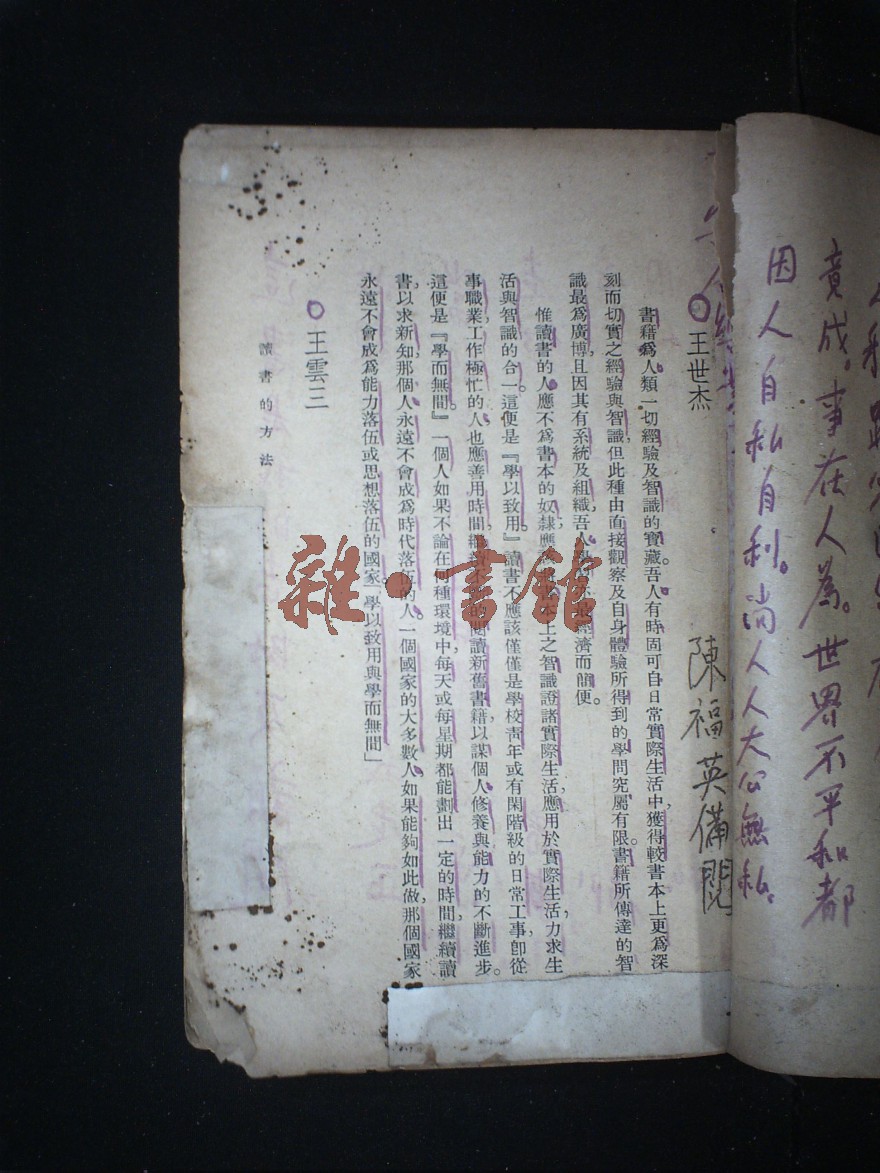 因人自私自利。尚人人大公無私。
竟成。事在人為。世界不平和都
王世杰
陳福英備閱
書籍爲人類一切經驗及智識的寶藏吾人有時固可自日常實際生活中獲得較書本上更爲深
刻而切實之經驗與智識,但此種由面接觀察及自身體驗所得到的學問究屬有限。書籍所傳達的智
識最爲廣博,且因其有系統及組織,吾人經濟而簡便。
惟讀書的人,應不爲書本的奴隸,應本上之智識證諸實際生活,應用於實際生活,力求生
活與智識的合一。這便是『學以致用』讀書不應該僅僅是學校靑年或有閑階級的日常工事,卽從
事職業工作極忙的人,也應善用時間,的閱讀新舊書籍,以謀個人修養與能力的不斷進步。
這便是『學而無間』。一個人如果不論在何種環境中,每天或每星期都能劃出一定的時間,繼續讀
書以求新知,那個人永遠不會成爲時代落伍的人。一個國家的大多數人,如果能夠如此做,那個國家
永遠不會成爲能力落伍或思想落伍的國家」學以致用與學而無間」
王雲三
讀書的方法
雜·書館